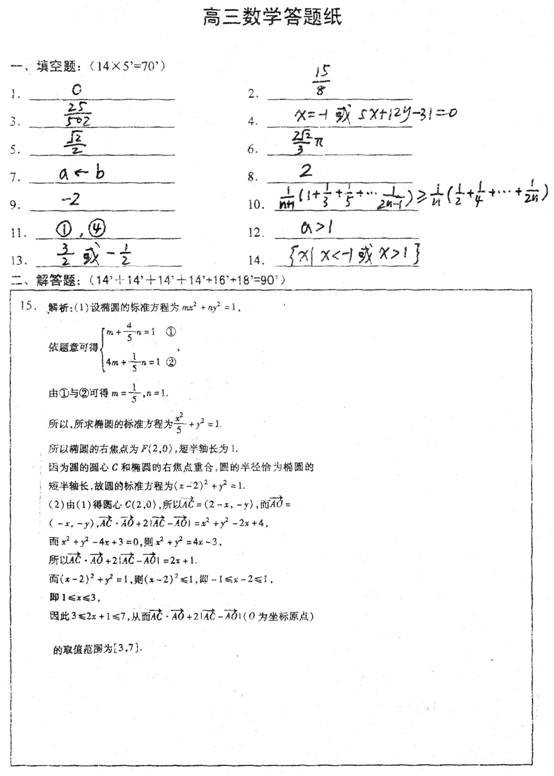 高三数学答题纸
一、填空题：（14×5'=70'）
1. 0 2. 15/8
3. 25/502 4. x=-1 或 5x+12y-31=0
5. √2/2 6. 2√2/3 π
7. a←b 8. 2
9. -2 10. 1/(n+1)(1+1/3+1/5+…1/(2n-1))≥1/n(1/2+1/4+…+1/2n)
11. ①,④ 12. a>1
13. 3/2 或 -1/2 14. {x|x<-1或x>1}
二、解答题：（14'+14'+14'+14'+16'+18'=90'）
15. 解析:(1)设椭圆的标准方程为mx²+ny²=1,
依题意可得{m+4/5n=1 ① 4m+1/5n=1 ②,
由①与②可得m=1/5,n=1.
所以,所求椭圆的标准方程为x²/5+y²=1.
所以椭圆的右焦点为F(2,0),短半轴长为1.
因为圆的圆心C和椭圆的右焦点重合,圆的半径恰为椭圆的
短半轴长,故圆的标准方程为(x-2)²+y²=1.
(2)由(1)得圆心C(2,0),所以AC→=(2-x,-y),而AO→=
(-x,-y),AC→·AO→+2|AC→-AO→|=x²+y²-2x+4,
而x²+y²-4x+3=0,则x²+y²=4x-3,
所以AC→·AO→+2|AC→-AO→|=2x+1.
而(x-2)²+y²=1,则(x-2)²≤1,即-1≤x-2≤1,
即1≤x≤3,
因此3≤2x+1≤7,从而AC→·AO→+2|AC→-AO→|(O为坐标原点)
的取值范围为[3,7].